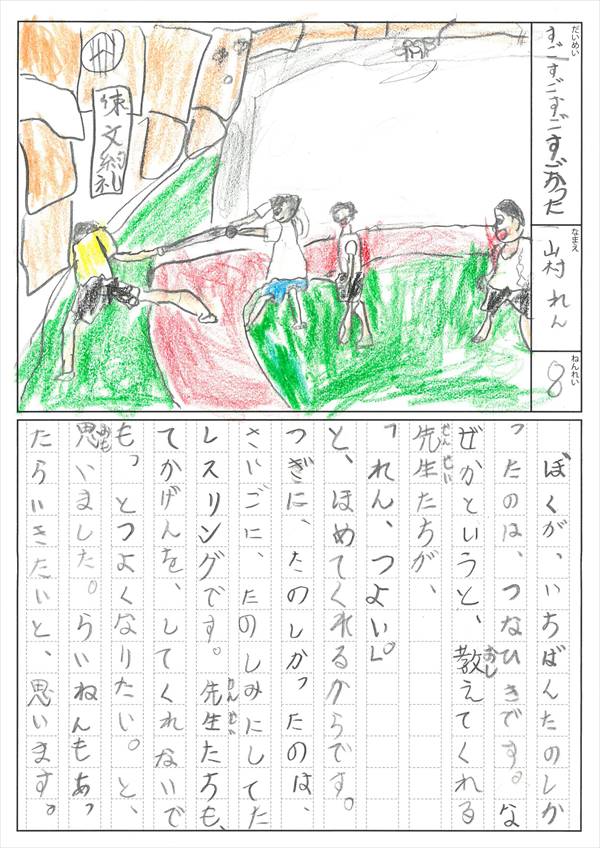 だいめい
すごすごすごすごかった
なまえ
山村れん
ねんれい
8
ぼくが、いちばんたのしか
ったのは、つなひきです。な
ぜかというと、教えてくれる
おし
先生たちが、
せんせい
「れん、つよい。」
と、ほめてくれるからです。
つぎに、たのしかったのは、
さいごに、たのしみにしてた
レスリングです。先生たちも、
せんせい
てかげんを、してくれないで
もっとつよくなりたい。と、
思いました。らいねんもあっ
おも
たらいきたいと、思います。